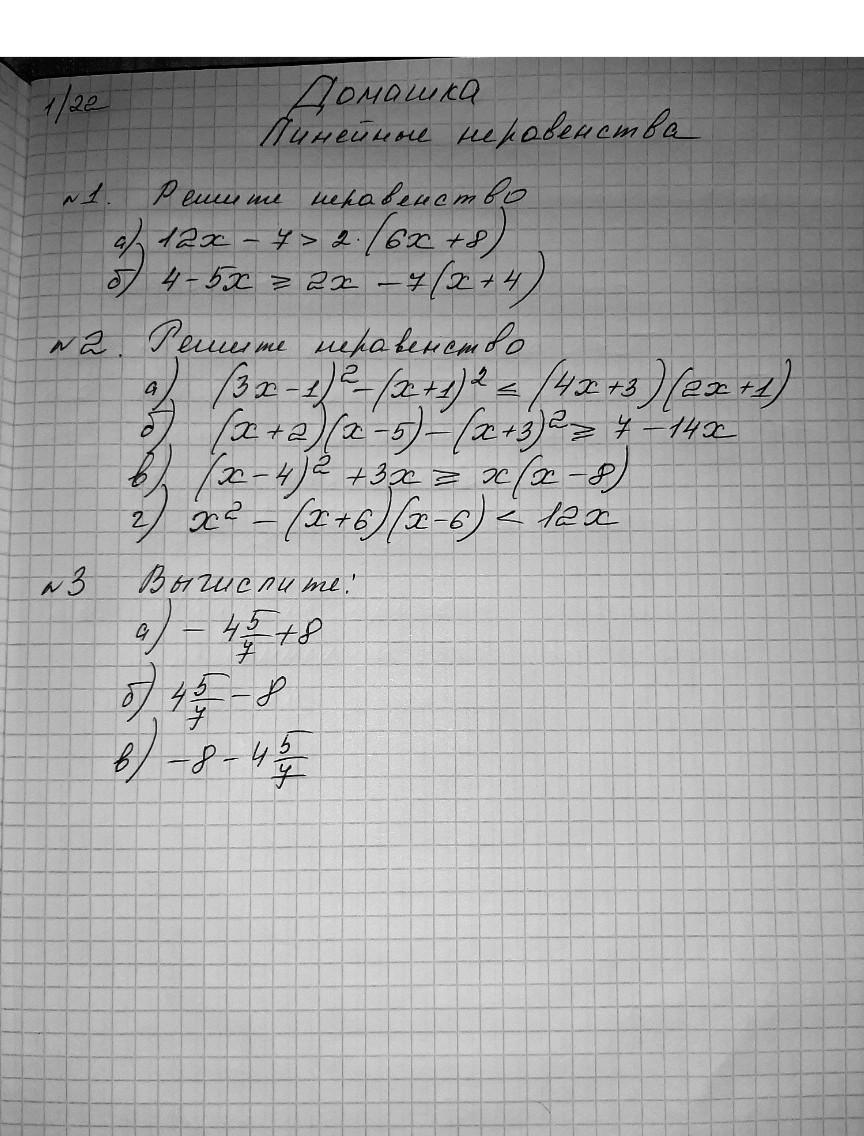 1/22
Домашка
Линейные неравенства
№1. Решите неравенство
а) 12x - 7 > 2·(6x + 8)
б) 4 - 5x ≥ 2x - 7(x + 4)
№2. Решите неравенство
а) (3x - 1)² - (x + 1)² ≤ (4x + 3)(2x + 1)
б) (x + 2)(x - 5) - (x + 3)² ≥ 7 - 14x
в) (x - 4)² + 3x ≥ x(x - 8)
г) x² - (x + 6)(x - 6) < 12x
№3 Вычислите:
а) - 4 5/7 + 8
б) 4 5/7 - 8
в) - 8 - 4 5/7